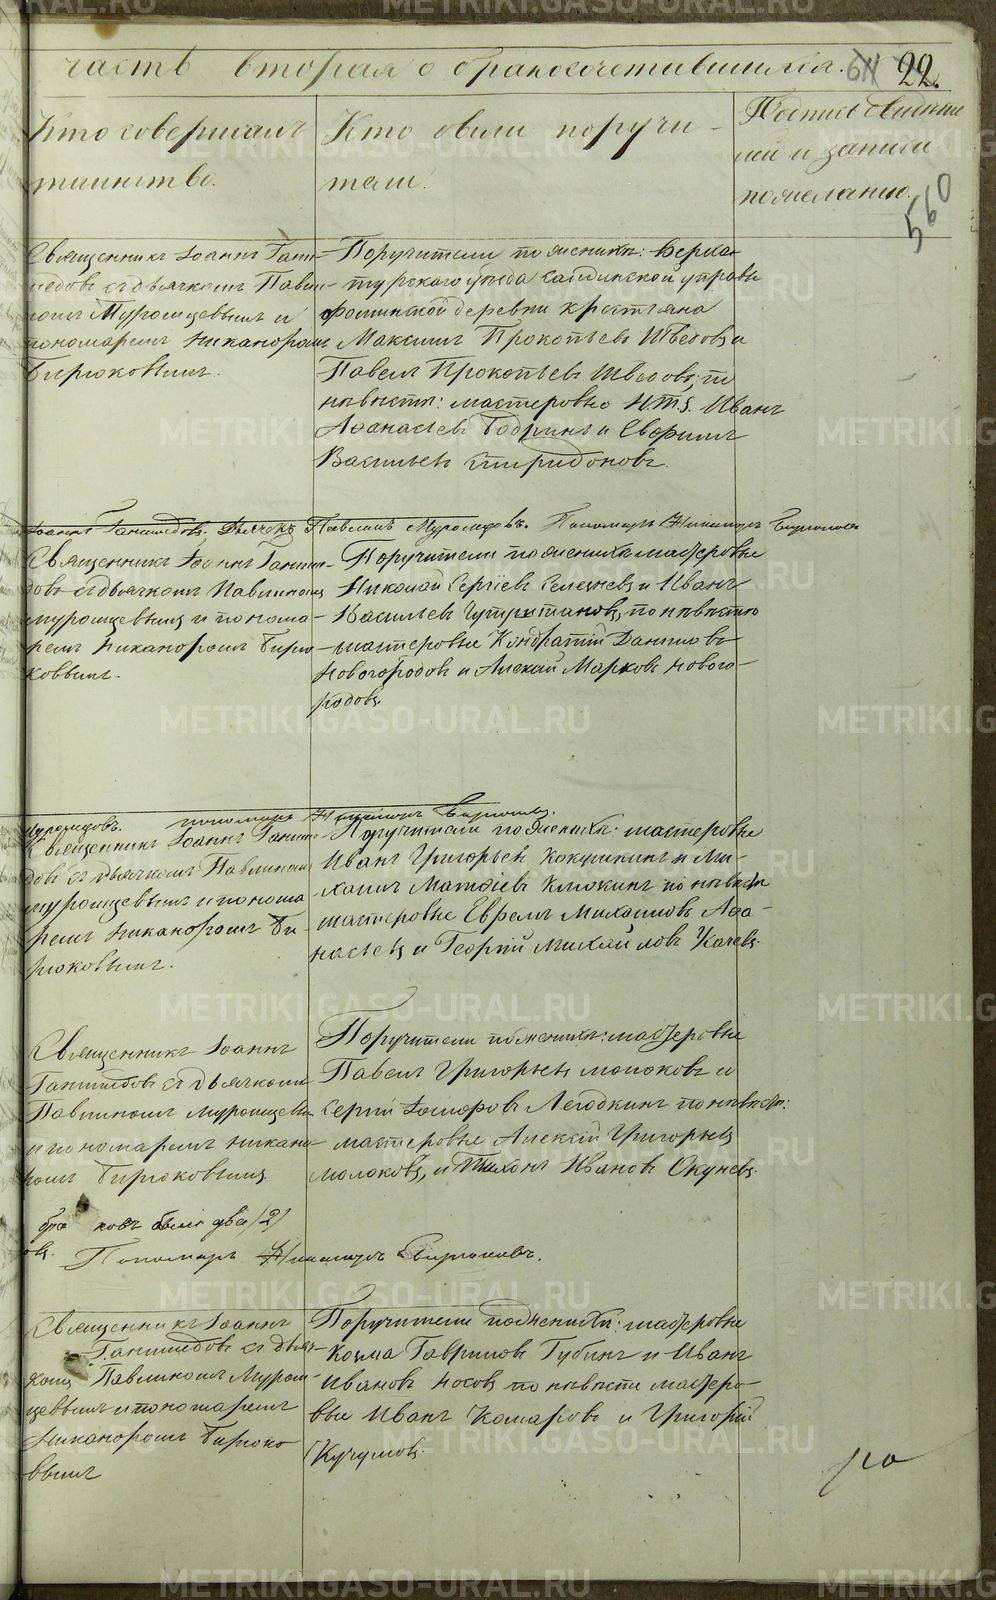 часть вторая о бракосочетавшихся. 611 22.
Кто совершалъ
таинство.
Кто были поручи-
тели.
Подпись свидете
лей и записи
по желанію.
560
Священникъ Іоаннъ Гани-
медовъ съ дьячкомъ Павли-
номъ Муромцевымъ и
пономаремъ Никаноромъ
Бирюковымъ.
Поручители по женихѣ: Верхо-
турскаго уѣзда управы
деревни крестьяна
Максимъ Прокопьевъ Швецовъ и
Павелъ Прокопьевъ Швецовъ; по
невѣстѣ: мастеровые Н.Т.з. Иванъ
Афанасьевъ и Ефримъ
Васильевъ Спиридоновъ.
Іоаннъ Ганимедовъ. Дьячокъ Павлинъ Муромцовъ. Пономарь Никаноръ Бирюковъ
Священникъ Іоаннъ Ганиме-
довъ съ дьячкомъ Павлиномъ
Муромцевымъ и понома-
ремъ Никаноромъ Бирю-
ковымъ.
Поручители по женихѣ мастеровые
Николай Сергіевъ Селезневъ и Иванъ
Васильевъ по невѣстѣ
мастеровые Кондратій Даниловъ
Новогородовъ и Алексѣй Марковъ Нового-
родовъ
Муромцовъ. пономарь Никаноръ Бирюковъ.
Священникъ Іоаннъ Ганиме-
довъ съ дьячкомъ Павлиномъ
Муромцевымъ и понома
ремъ Никаноромъ Би-
рюковымъ.
Поручители по женихѣ: мастеровые
Иванъ Григорьевъ Кокушкинъ и Ми-
хаилъ Матвіевъ Клюкинъ по невѣстѣ
мастеровые Евремъ Михаиловъ Афа-
насьевъ и Георгій Михайловъ Усачевъ.
Священникъ Іоаннъ
Ганимедовъ съ дьячкомъ
Павлиномъ Муромцевы
и пономаремъ Никано-
ромъ Бирюковымъ
Поручители по женихѣ: мастеровые
Павелъ Григорьевъ Молоковъ и
Сергій Легодкинъ по невѣстѣ:
мастеровые Алексій Григорьевъ
Молоковъ, и Тихонъ Ивановъ Окуневъ.
бра ковъ было два /2/
овъ. Пономарь Никаноръ Бирюковъ.
Священникъ Іоаннъ
Ганимедовъ съ дьяч-
комъ Павлиномъ Муром-
цевымъ и пономаремъ
Никаноромъ Бирюко-
вымъ
Поручители по женихѣ: мастеровые
Козма Гавриловъ Губинъ и Иванъ
Ивановъ Носовъ по невѣстѣ мастеро-
вые Иванъ Комаровъ и Григорій
Кучумовъ.
METRIKI.GASO-URAL.RU